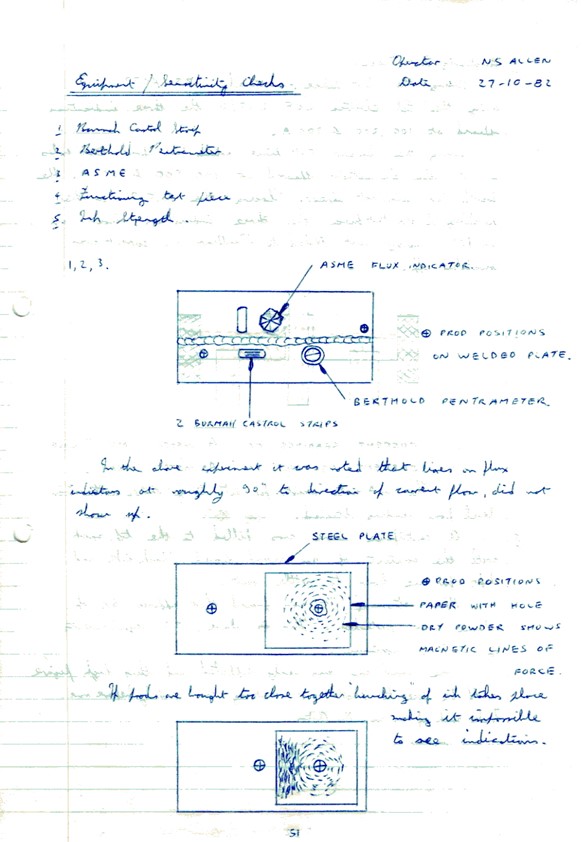 Operator NS ALLEN
Equipment / Sensitivity Checks
Date 27-10-82
1 Burmah Castrol Strip
2 Berthold Pentrameter
3 ASME
4 Functioning test piece
5. Ink Strength.
1, 2, 3.
ASME FLUX INDICATOR.
⊕ PROD POSITIONS
ON WELDED PLATE.
BERTHOLD PENTRAMETER
2 BURMAH CASTROL STRIPS
In the above experiment it was noted that lines on flux
indicators at roughly 90° to direction of current flow, did not
show up.
STEEL PLATE
⊕ PROD POSITIONS
PAPER WITH HOLE
DRY POWDER SHOWS
MAGNETIC LINES OF
FORCE.
If prods are bought too close together "bunching" of ink takes place
making it impossible
to see indications.
51